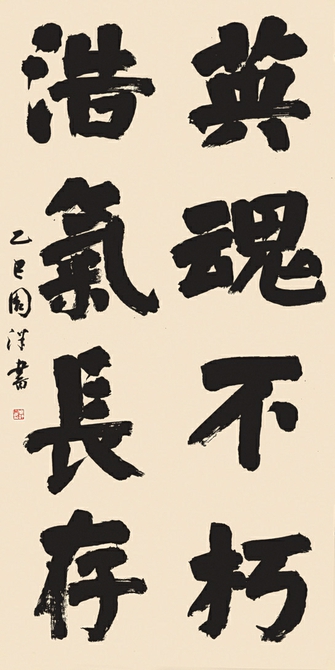 英魂不朽
浩氣長存
乙巳周洋書